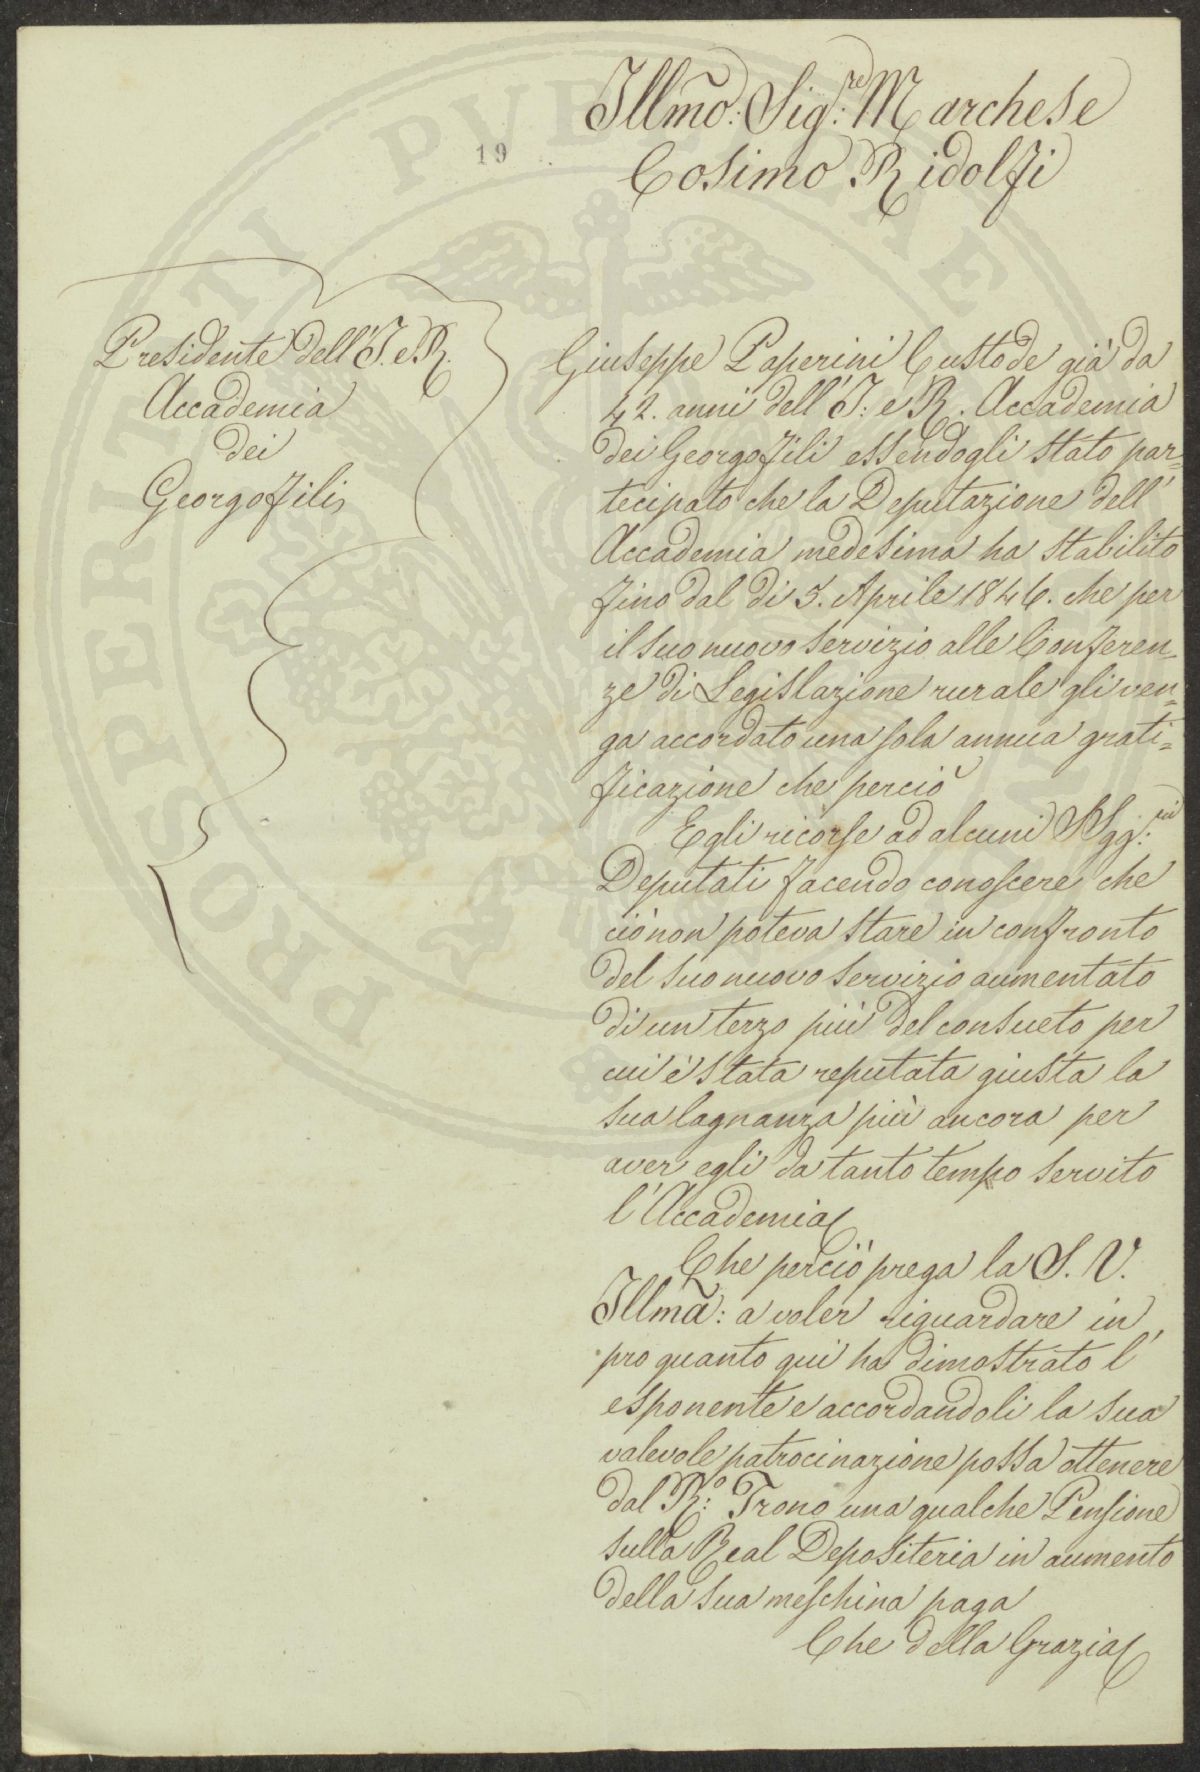 19
Illmo: Sig:re Marchese
Cosimo Ridolfi
Presidente dell'I. e R.
Accademia
dei
Georgofili
Giuseppe Paperini Custode già da
42. anni dell'I: e R. Accademia
dei Georgofili essendogli stato par=
tecipato che la Deputazione dell'
Accademia medesima ha stabilito
fino dal dì 5. Aprile 1846. che per
il suo nuovo servizio alle Conferen=
ze di Legislazione rurale gli ven=
ga accordato una sola annua grati=
ficazione che perciò
Egli ricorse ad alcuni SSgg:ri
Deputati facendo conoscere che
ciò non poteva stare in confronto
del suo nuovo servizio aumentato
di un terzo più del consueto per
cui è stata reputata giusta la
sua lagnanza più ancora per
aver egli da tanto tempo servito
l'Accademia
Che perciò prega la S. V.
Illma: a voler riguardare in
pro quanto qui ha dimostrato l'
esponente e accordandoli la sua
valevole patrocinazione possa ottenere
dal R:o Trono una qualche Pensione
sulla Real Depositeria in aumento
della sua meschina paga
Che della Grazia
PROSPERITATI PVBLICAE